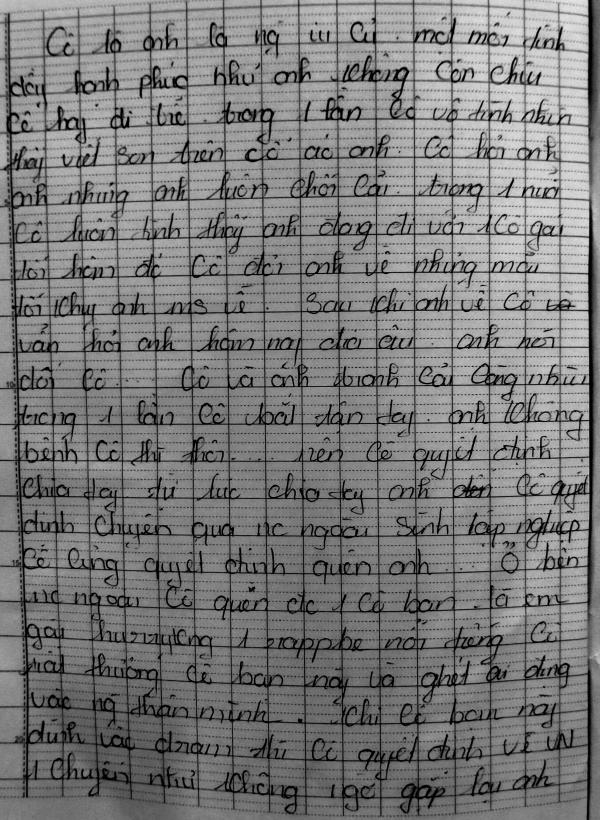 Cô là anh là ng iu cũ. một mối tình
đầy hạnh phúc như anh không còn chiu
cô hay đi trễ. trong 1 lần cô vô tình nhìn
thấy viết son trên cổ áo anh. Cô hỏi anh
anh nhưng anh luôn chối cải. trong 1 nười
cô luôn tình thấy anh đang đi với 1 cô gái
tối hôm đó cô đợi anh về nhưng mấu
tối khuy anh ms về. Sau khi anh về cô
vẫn hỏi anh hôm nay đi đâu. anh nói
dối cô... Cô và anh tranh cải càng nhìu
trong 1 lần cô bắt dận tay. anh không
bênh cô thì thôi.... nên cô quyết định
chia tay từ lúc chia tay anh cô quyết
định chuyển qua nc ngoài sinh lập nghiệp
cô cũng quyết định quên anh... Ở bên
nc ngoài cô quên đc 1 cô bạn là em
gái 1 rapper nổi tiếng cô
rất thương cô bạn này và ghét ai đụng
vào ng thân mình. Khi cô bạn này
dính vào dram thì cô quyết định về VN
1 chuyện như không ngờ gặp lại anh